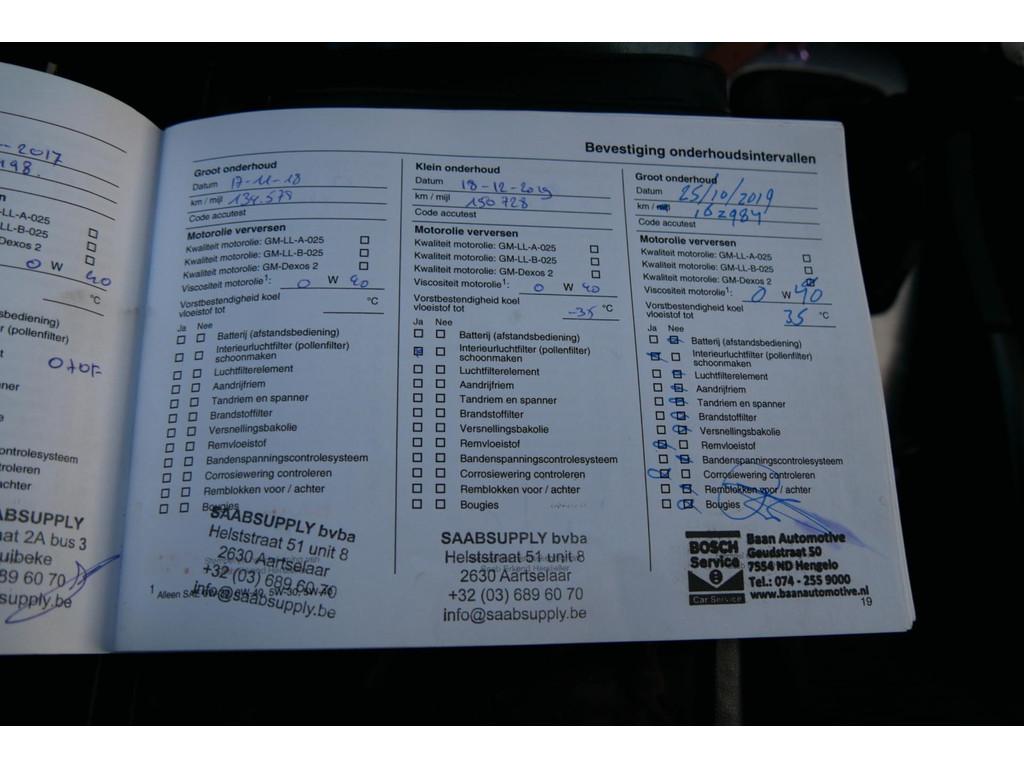 - 2017
198.
-LL-A-025
LL-B-025
Dexos 2
0 W 40
°C
sbediening)
r (pollenfilter)
070F
ner
ontrolesysteem
roleren
achter
ABSUPPLY
aat 2A bus 3
uibeke
89 60 70
supply.be
Bevestiging onderhoudsintervallen
Groot onderhoud
Datum 17-11-18
km / mijl 134.579
Code accutest
Motorolie verversen
Kwaliteit motorolie: GM-LL-A-025
Kwaliteit motorolie: GM-LL-B-025
Kwaliteit motorolie: GM-Dexos 2
Viscositeit motorolie¹: 0 W 40
Vorstbestendigheid koel
vloeistof tot °C
Ja Nee
Batterij (afstandsbediening)
Interieurluchtfilter (pollenfilter)
schoonmaken
Luchtfilterelement
Aandrijfriem
Tandriem en spanner
Brandstoffilter
Versnellingsbakolie
Remvloeistof
Bandenspanningscontrolesysteem
Corrosiewering controleren
Remblokken voor / achter
Bougies
SAABSUPPLY bvba
Helststraat 51 unit 8
2630 Aartselaar
+32 (03) 689 60 70
info@saabsupply.be
1 Alleen SAE
Klein onderhoud
Datum 18-12-2019
km / mijl 150728
Code accutest
Motorolie verversen
Kwaliteit motorolie: GM-LL-A-025
Kwaliteit motorolie: GM-LL-B-025
Kwaliteit motorolie: GM-Dexos 2
Viscositeit motorolie¹: 0 W 40
Vorstbestendigheid koel
vloeistof tot -35 °C
Ja Nee
Batterij (afstandsbediening)
Interieurluchtfilter (pollenfilter)
schoonmaken
Luchtfilterelement
Aandrijfriem
Tandriem en spanner
Brandstoffilter
Versnellingsbakolie
Remvloeistof
Bandenspanningscontrolesysteem
Corrosiewering controleren
Remblokken voor / achter
Bougies
SAABSUPPLY bvba
Helststraat 51 unit 8
2630 Aartselaar
+32 (03) 689 60 70
info@saabsupply.be
Groot onderhoud
Datum 25/10/2019
km / 162984
Code accutest
Motorolie verversen
Kwaliteit motorolie: GM-LL-A-025
Kwaliteit motorolie: GM-LL-B-025
Kwaliteit motorolie: GM-Dexos 2
Viscositeit motorolie¹: 0 W 40
Vorstbestendigheid koel
vloeistof tot 35 °C
Ja Nee
Batterij (afstandsbediening)
Interieurluchtfilter (pollenfilter)
schoonmaken
Luchtfilterelement
Aandrijfriem
Tandriem en spanner
Brandstoffilter
Versnellingsbakolie
Remvloeistof
Bandenspanningscontrolesysteem
Corrosiewering controleren
Remblokken voor / achter
Bougies
BOSCH
Service
Car Service
Baan Automotive
Geudstraat 50
7554 ND Hengelo
Tel.: 074 - 255 9000
www.baanautomotive.nl
19